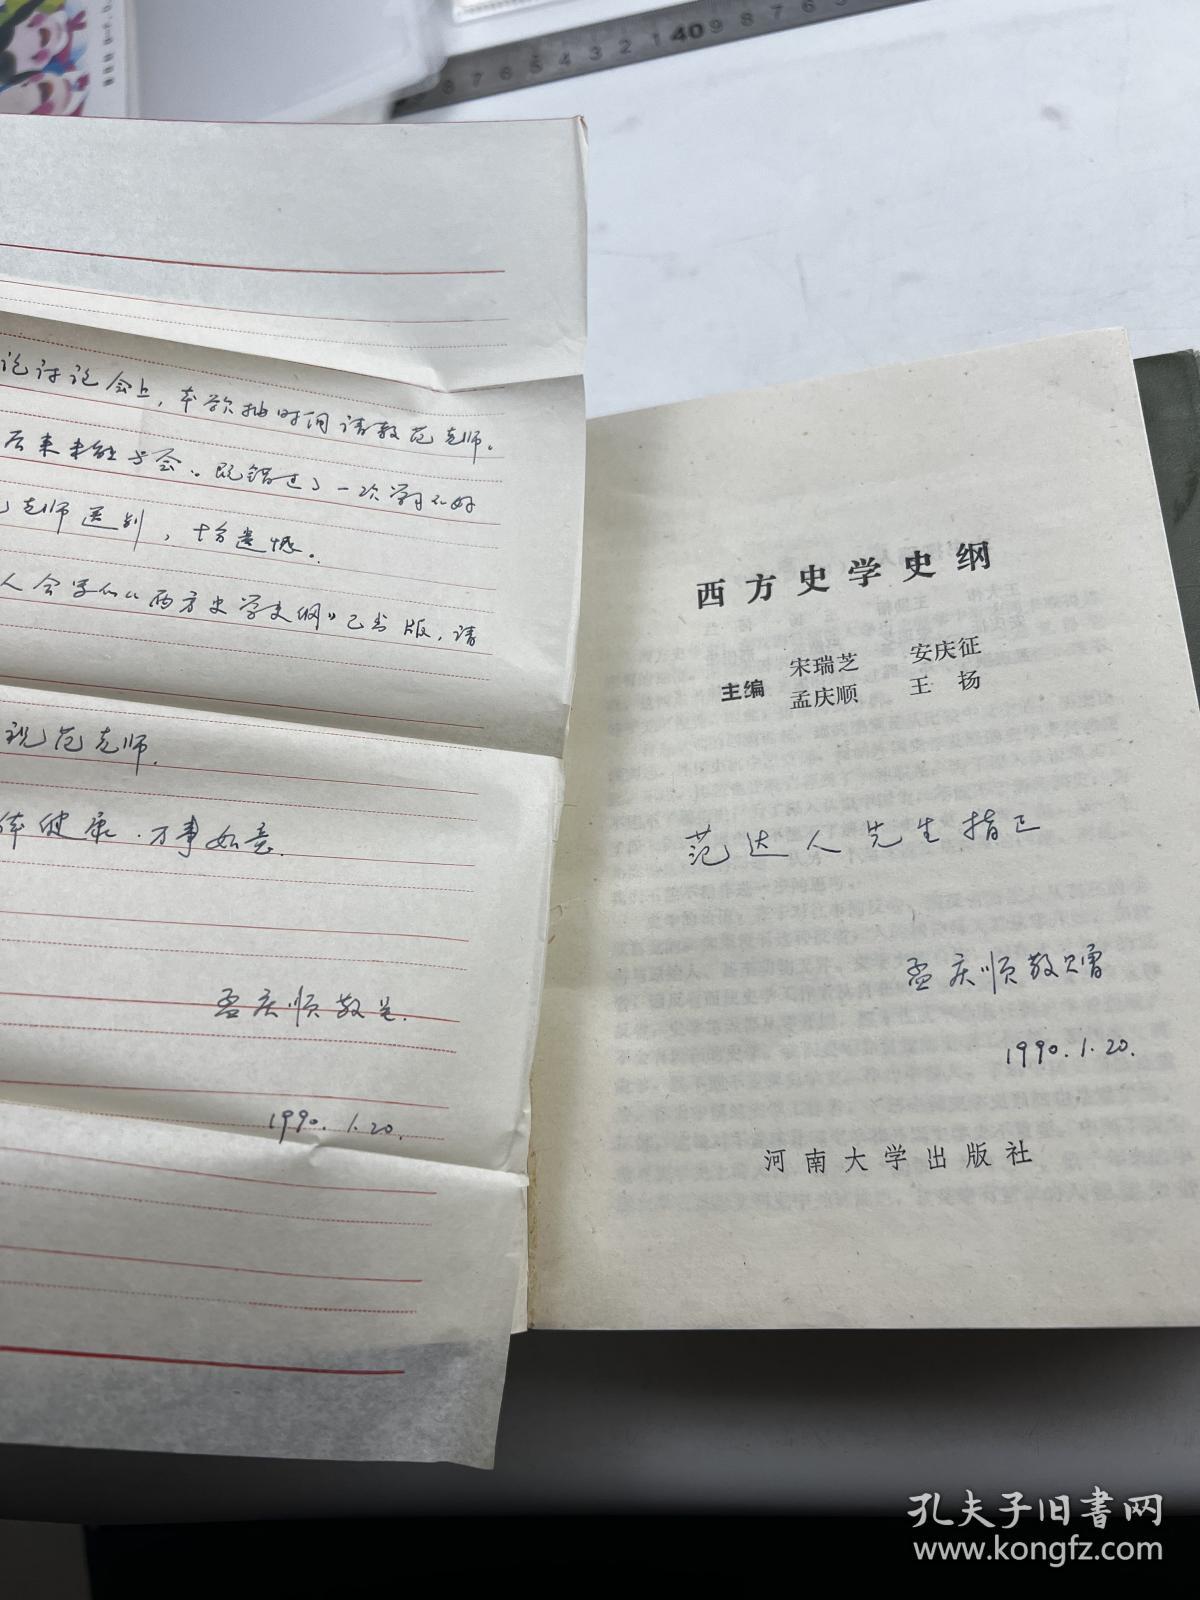 8 7 6 5 4 3 2 1 40 9 8 7 6 5
论讨论会上，本欲抽时间请教范老师。
后来未能与会。既错过了一次学习的好
老师送别，十分遗憾。
人合写的《西方史学史纲》已出版，请
祝范老师.
体健康.万事如意.
孟庆顺敬呈.
1990.1.20.
西方史学史纲
主编 宋瑞芝 安庆征
孟庆顺 王扬
范达人先生指正
孟庆顺敬赠
1990.1.20.
河南大学出版社
孔夫子旧书网
www.kongfz.com